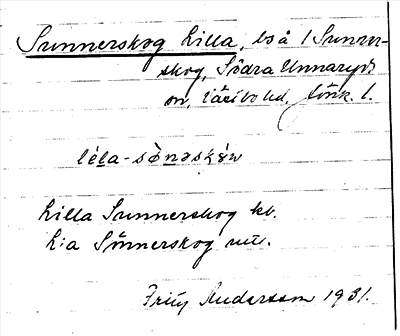 Sunnerskog Lilla, ls å 1 Sunner-
skog, Södra Unnaryds
sn, Västbo hd, Jönk. l.
lèla-sònəskóu
Lilla Sunnerskog kb.
L:a Sönnerskog
Fritz Andersson 1931.